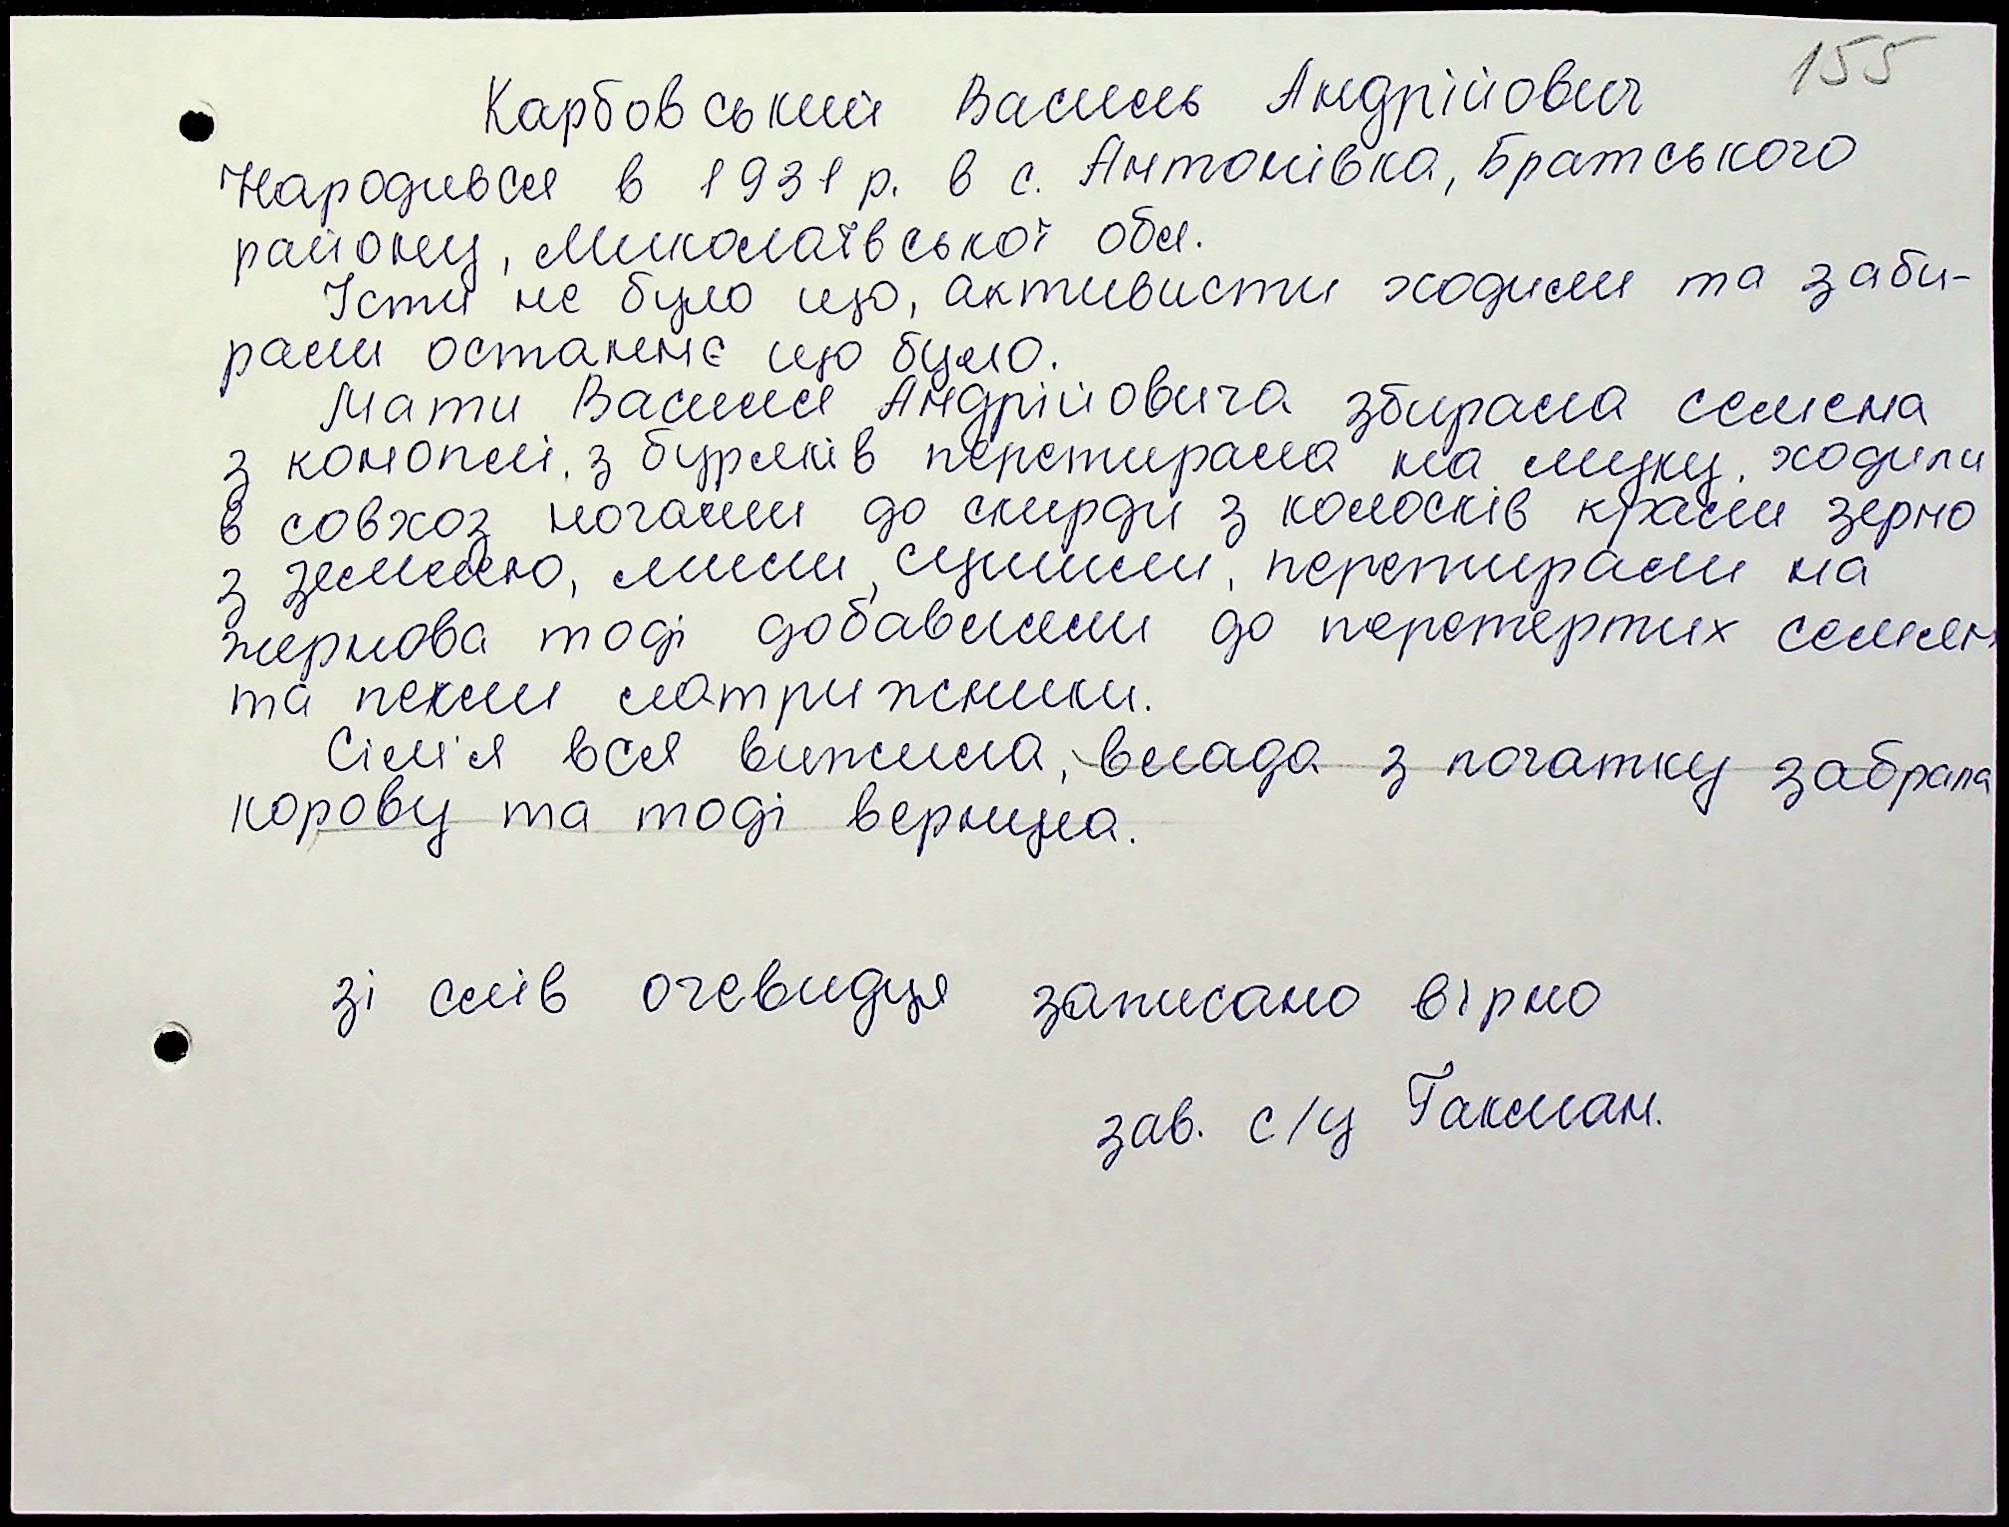 155
Карбовський Василь Андрійович
Народився в 1931 р. в с. Антонівка, Братського
району, Миколаївської обл.
Їсти не було що, активисти ходили та заби-
рали останнє що було.
Мати Василя Андрійовича збирала семена
з коноплі, з буряків перетирала на муку, ходили
в совхоз ногами до скирди з колосків крали зерно
з землею, мили, сушили, перетирали на
жернова тоді добавляли до перетертих семян
та пекли матрижники.
Сім'я вся вижила, влада з початку забрала
корову та тоді вернула.
зі слів очевидця записано вірно
зав. с/ц Гакман.